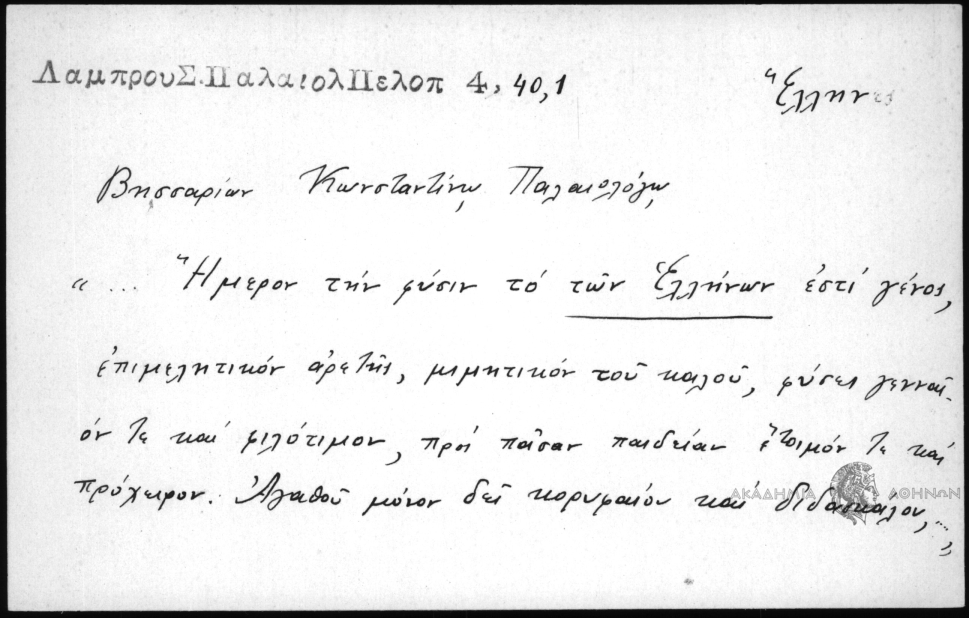 ΛαμπρουΣ.ΠαλαιολΠελοπ 4, 40,1
Ἕλληνες
Βησσαρίων Κωνσταντίνῳ Παλαιολόγῳ
“ ... Ἥμερον τήν φύσιν τό τῶν Ἑλλήνων ἐστί γένος,
ἐπιμελητικόν ἀρετῆς, μιμητικόν τοῦ καλοῦ, φύσει γενναῖ-
όν τε καί φιλότιμον, πρός πᾶσαν παιδείαν ἕτοιμόν τε καί
πρόχειρον. Ἀγαθοῦ μόνον δεῖ κορυφαίου καί διδασκάλου, ... „
ΑΚΑΔΗΜΙΑ ΑΘΗΝΩΝ